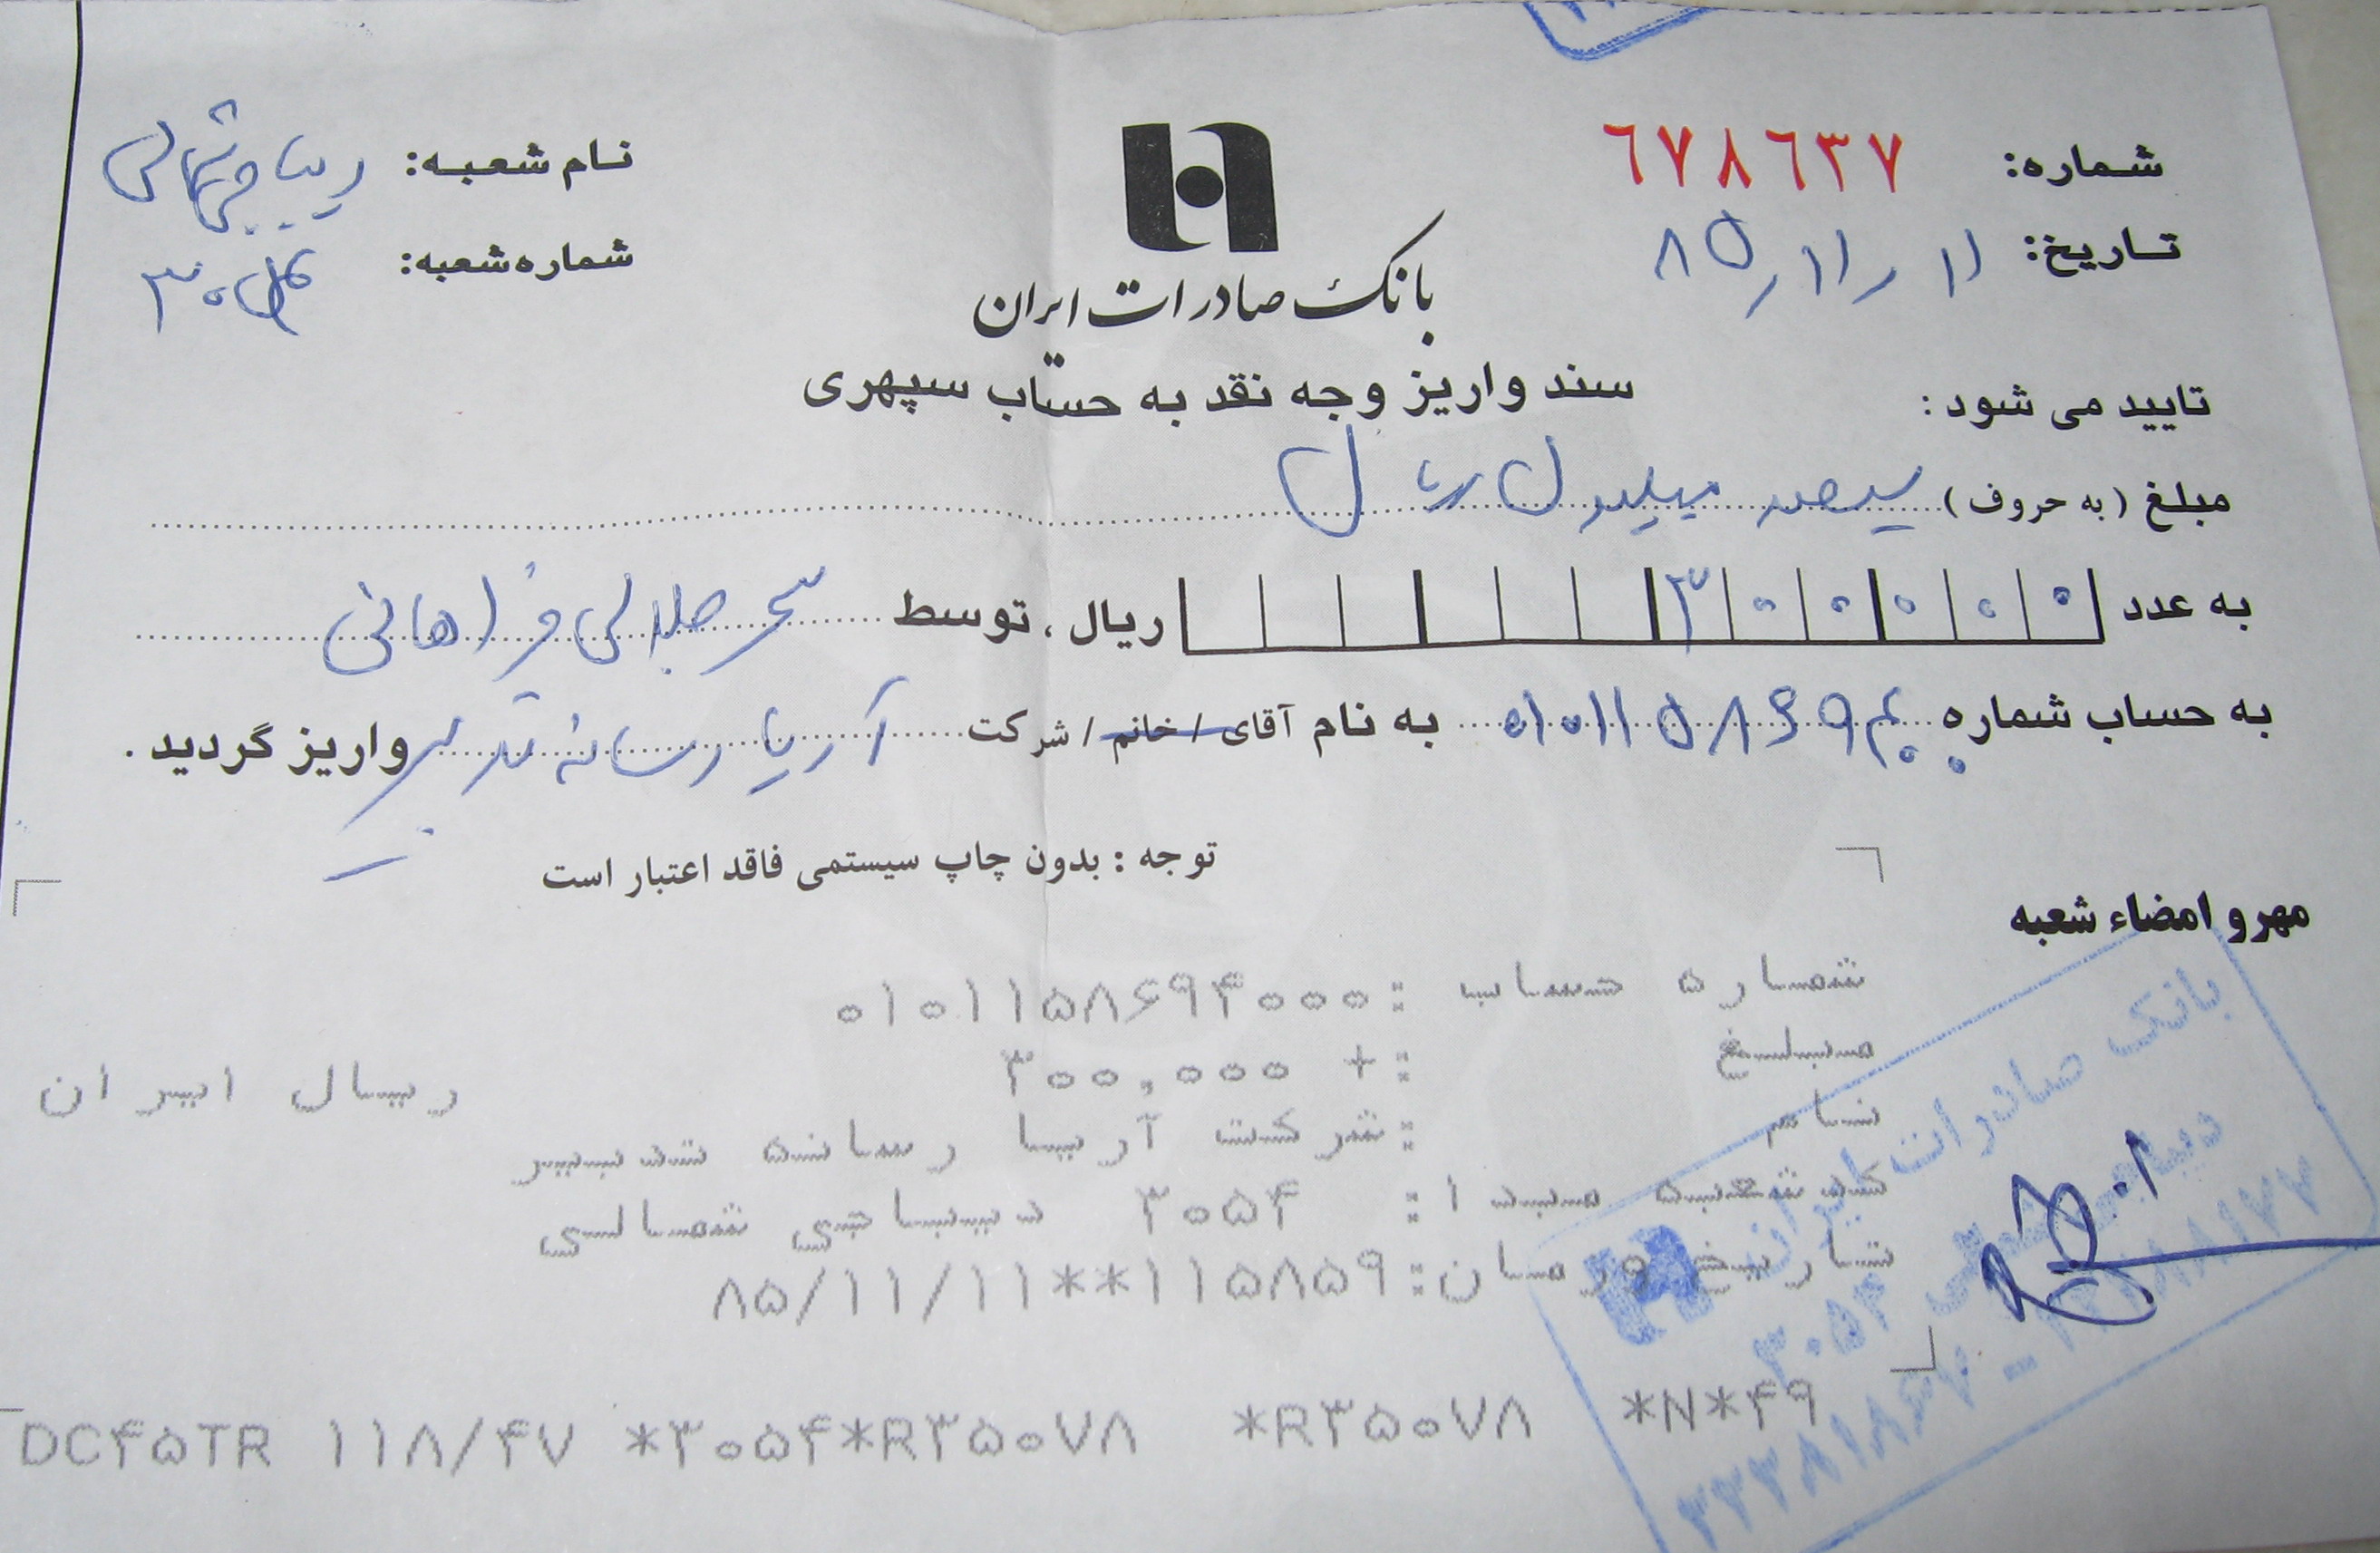 شماره: ٦٧٨٦٣٧
نام شعبه: دیباجی شمالی
تاریخ: ۸۵/۱۱/۱۱
شماره شعبه: ۳۰۵۴
بانک صادرات ایران
سند واریز وجه نقد به حساب سپهری
تایید می شود :
مبلغ ( به حروف )
به عدد ۳۰۰۰۰۰ ریال ، توسط سحر جلالی فراهانی
به حساب شماره ۰۱۰۱۱۵۸۶۹۴۰۰۰ به نام آقای / خانم / شرکت آریا رسانه تدبیر واریز گردید .
توجه : بدون چاپ سیستمی فاقد اعتبار است
مهر و امضاء شعبه
شماره حساب :۰۱۰۱۱۵۸۶۹۴۰۰۰
مبلغ :+ ۳۰۰,۰۰۰ ریال ایران
نام :شرکت آریا رسانه تدبیر
کدشعبه مبدا: ۳۰۵۴ دیباجی شمالی
تاریخ وزمان:۸۵/۱۱/۱۱**۱۱۵۸۵۹
DC۴۵TR ۱۱۸/۴۷ *۳۰۵۴*R۳۵۰۷۸ *R۳۵۰۷۸ *N*۴۹
بانک صادرات ایران
دیباجی شمالی
۳۰۵۴